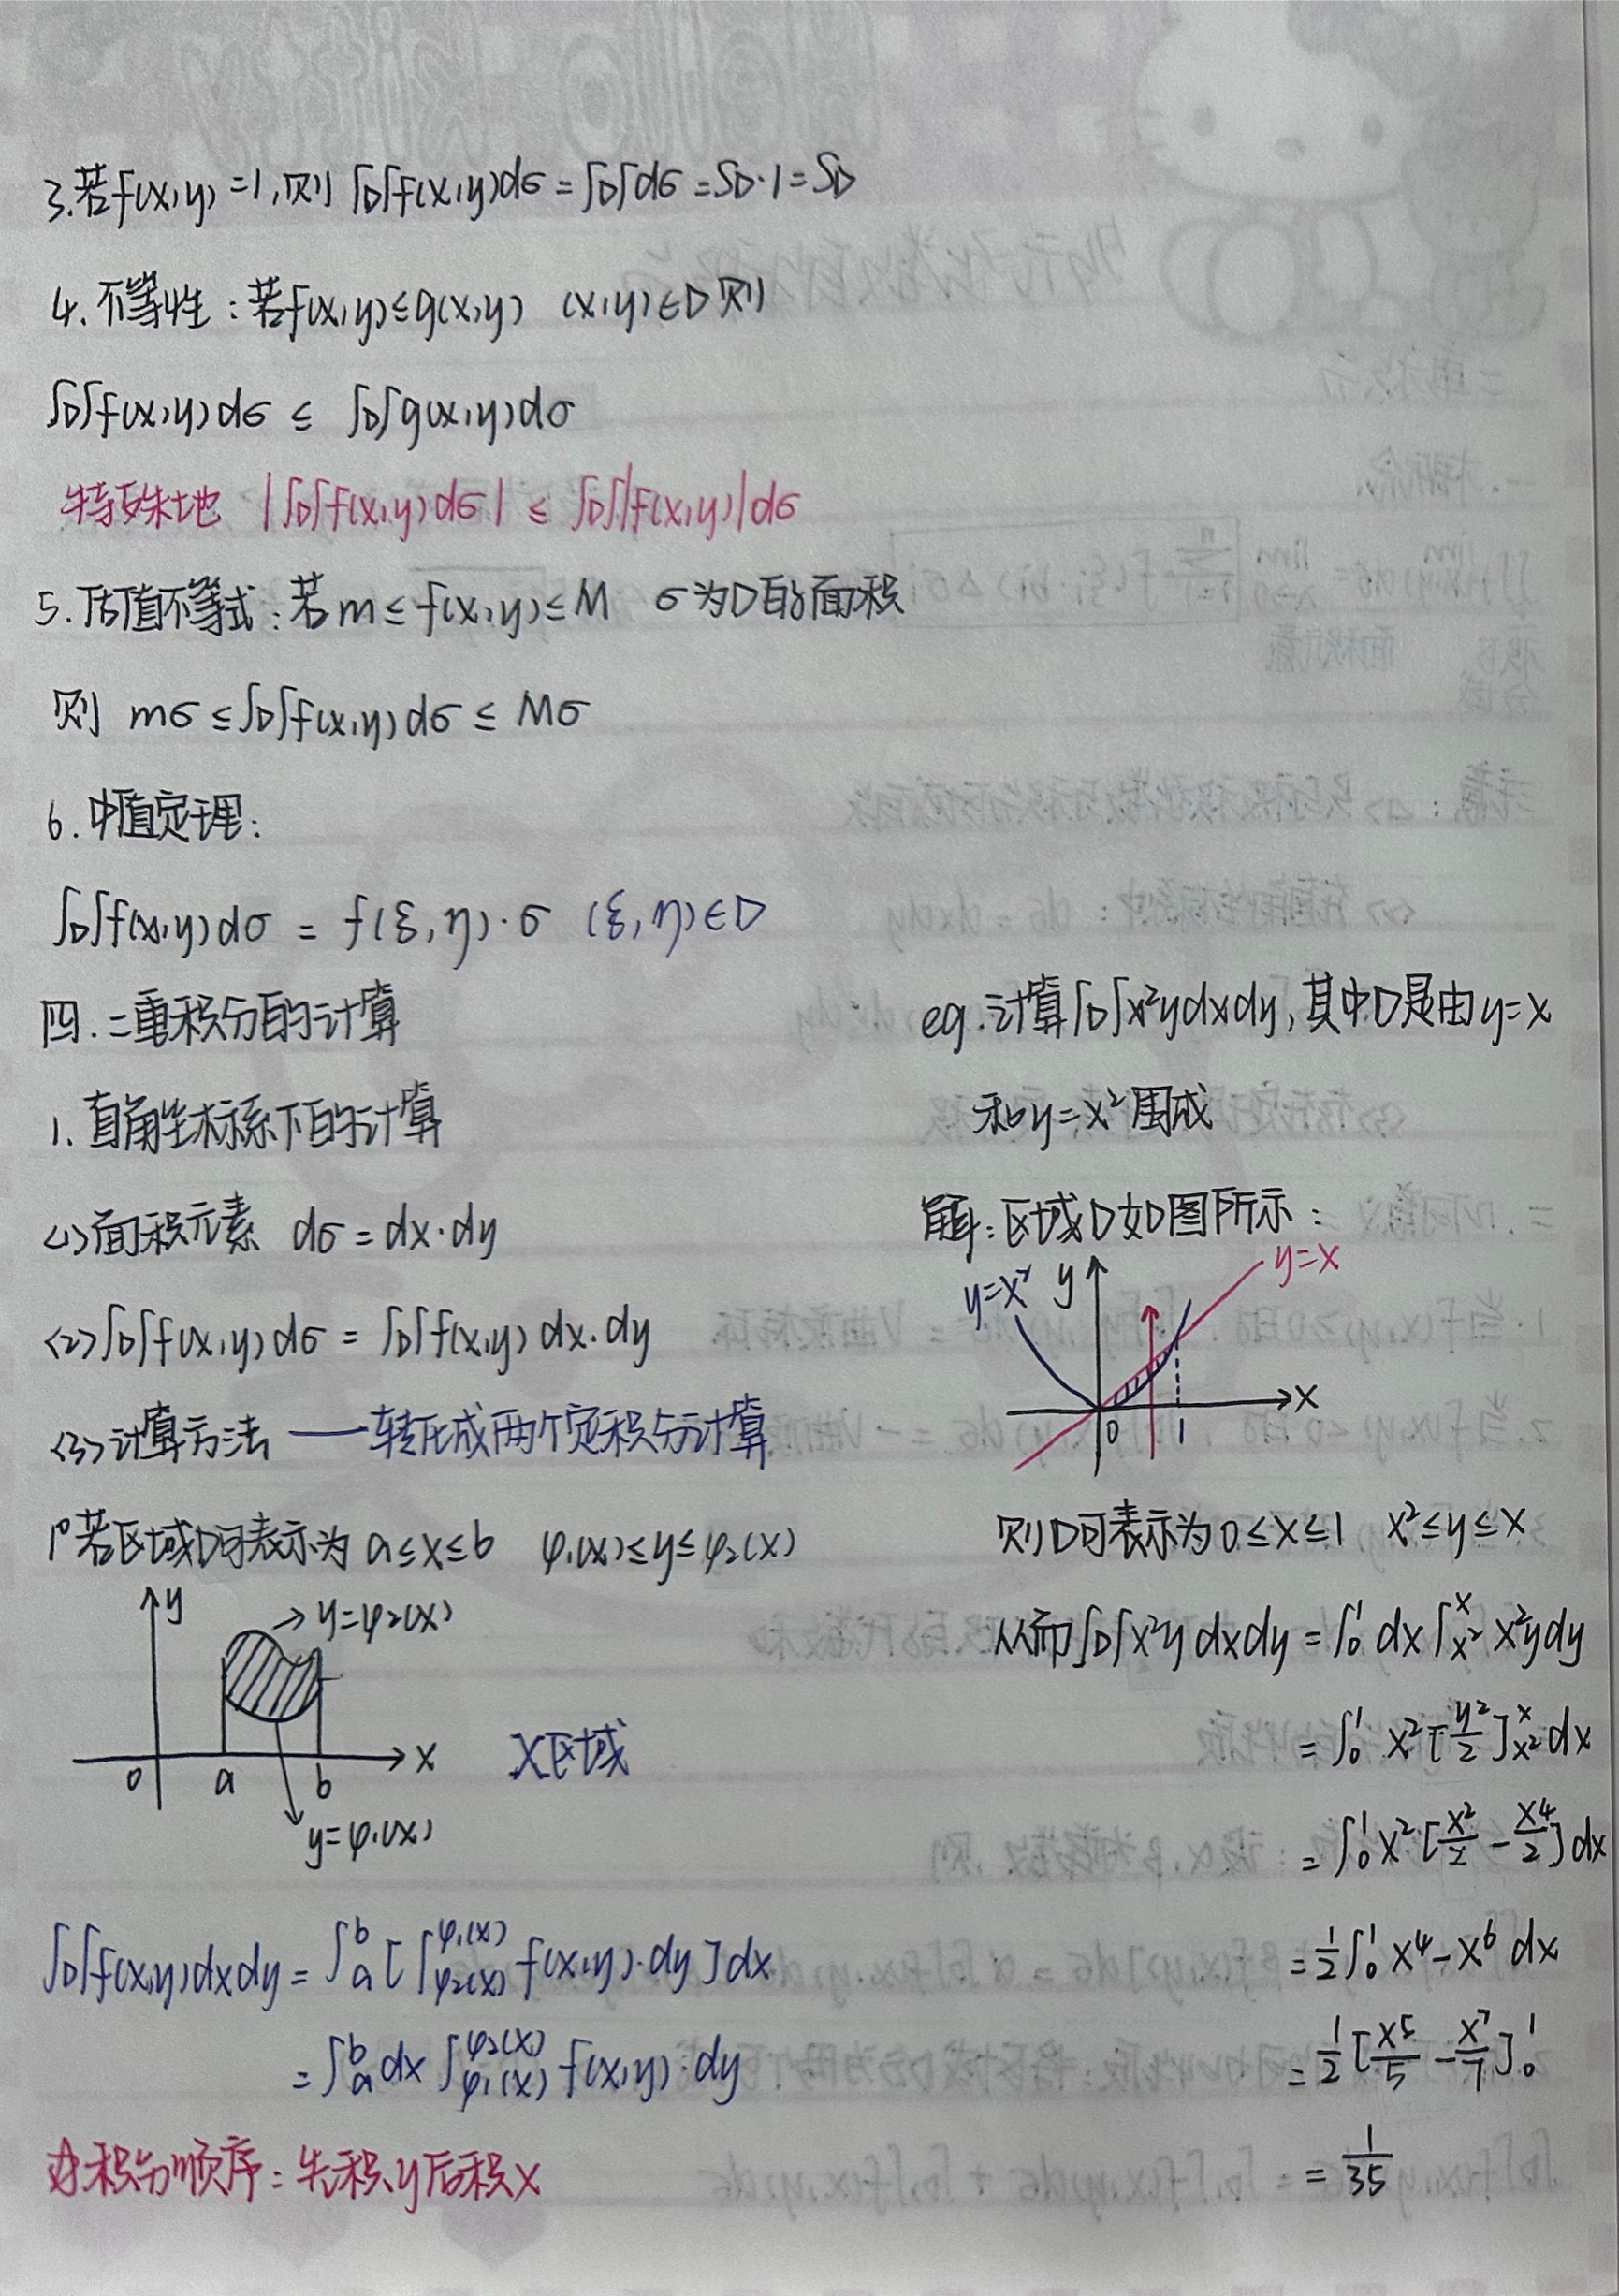 3.若f(x,y)=1,则∫D∫f(x,y)dσ=∫D∫dσ=SD·1=SD
4.不等性:若f(x,y)≤g(x,y) (x,y)∈D则
∫D∫f(x,y)dσ ≤ ∫D∫g(x,y)dσ
特殊地 |∫D∫f(x,y)dσ| ≤ ∫D∫|f(x,y)|dσ
5.估值不等式:若m≤f(x,y)≤M σ为D的面积
则 mσ≤∫D∫f(x,y)dσ≤Mσ
6.中值定理:
∫D∫f(x,y)dσ = f(ξ,η)·σ (ξ,η)∈D
四.二重积分的计算
1.直角坐标系下的计算
<1>面积元素 dσ=dx·dy
<2>∫D∫f(x,y)dσ = ∫D∫f(x,y)dx·dy
<3>计算方法——转化成两个定积分计算
1°若区域D可表示为 a≤x≤b φ₁(x)≤y≤φ₂(x)
y
→y=φ₂(x)
0 a b x
X区域
y=φ₁(x)
∫D∫f(x,y)dxdy=∫ₐᵇ[∫_{φ₂(x)}^{φ₁(x)} f(x,y)·dy]dx
=∫ₐᵇdx∫_{φ₁(x)}^{φ₂(x)} f(x,y)·dy
积分顺序:先积y后积x
eg.计算∫D∫x²ydxdy,其中D是由y=x
和y=x²围成
解:区域D如图所示:
y=x² y y=x
0 1 x
则D可表示为0≤x≤1 x²≤y≤x
从而∫D∫x²ydxdy=∫₀¹dx∫_{x²}^{x}x²ydy
=∫₀¹x²[y²/2]_{x²}^{x}dx
=∫₀¹x²[x²/2-x⁴/2]dx
=1/2∫₀¹x⁴-x⁶dx
=1/2[x⁵/5-x⁷/7]₀¹
=1/35